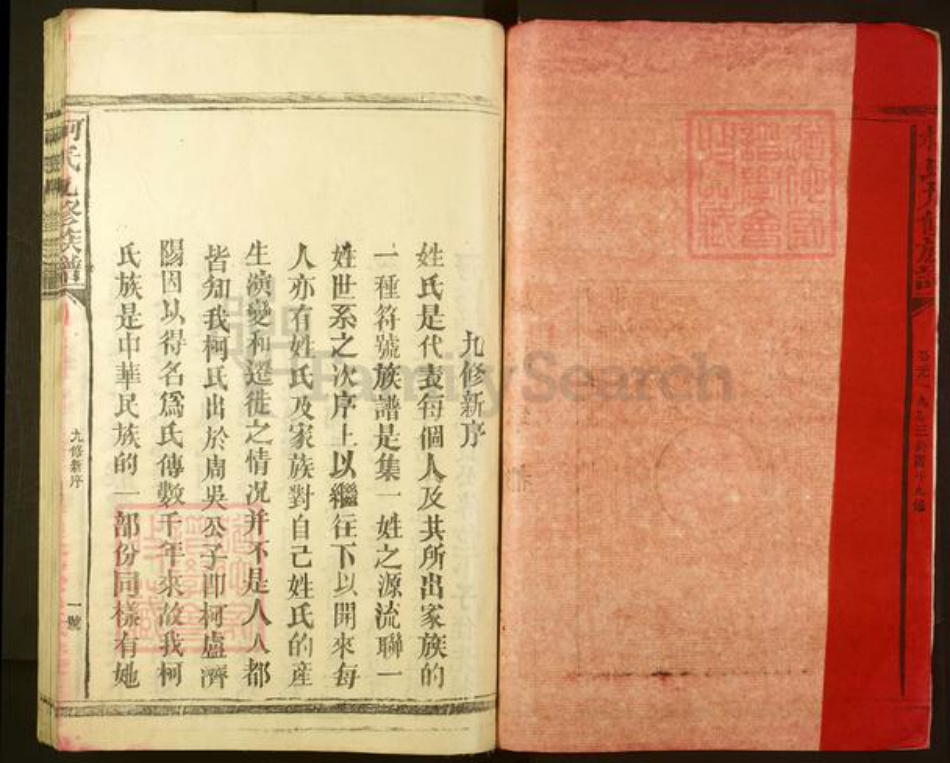 九修新序
姓氏是代表每個人及其所出家族的
一種符號族譜是集一姓之源流聯一
姓世系之次序上以繼往下以開來每
人亦有姓氏及家族對自己姓氏的産
生演變和遷徙之情况并不是人人都
皆知我柯氏出於周吳公子卽柯盧濟
陽因以得名爲氏傳數千年來故我柯
氏族是中華民族的一部份同樣有她
柯氏九修族譜
九修新序
一號
FamilySearch